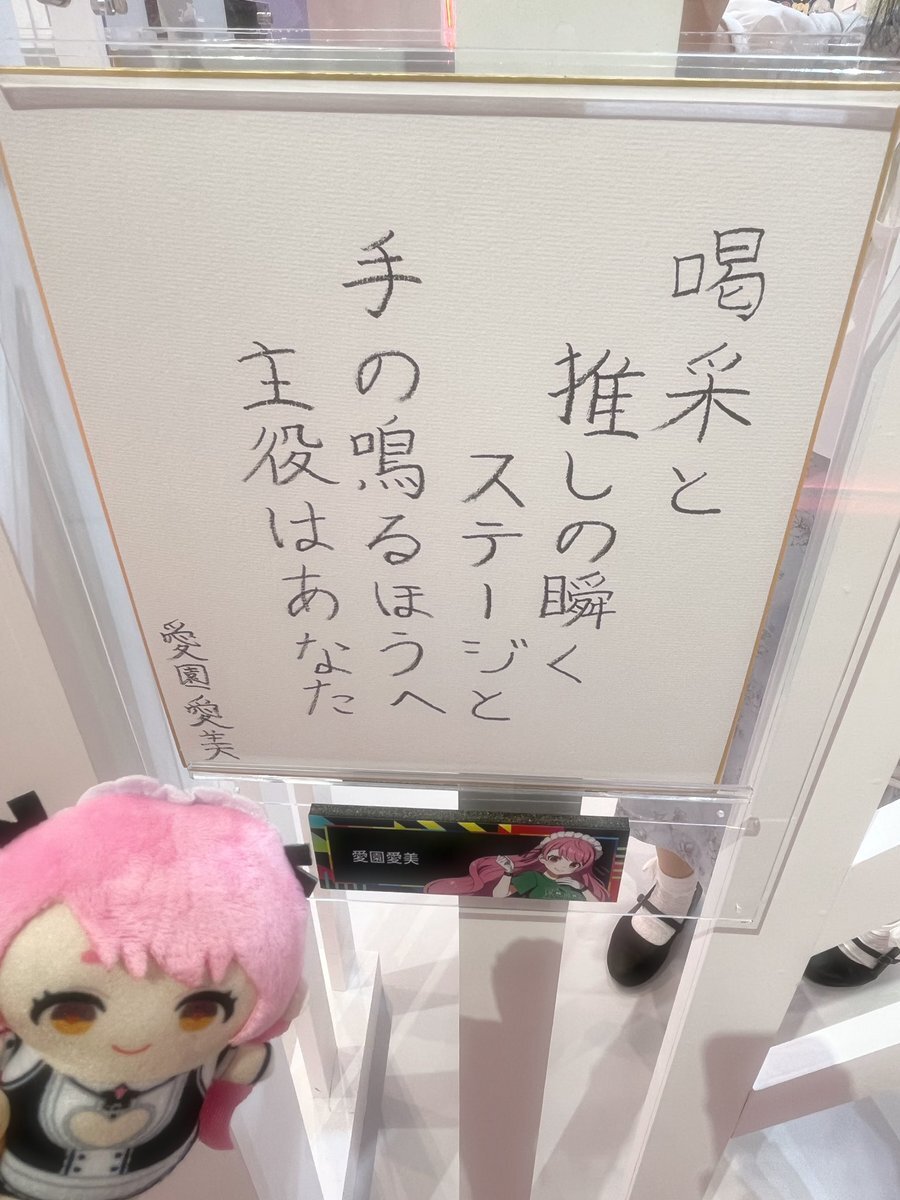 喝采と
推しの瞬く
ステージと
手の鳴るほうへ
主役はあなた
愛園愛美
愛園愛美